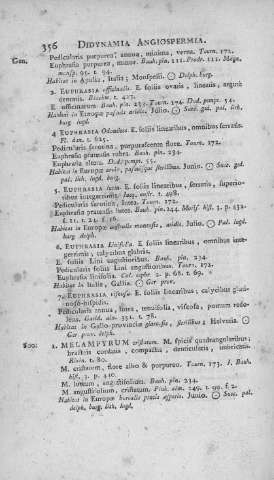 356 DIDYNAMIA ANGIOSPERMIA.
Pedicularis purpurea, annua, minima, verna. Tourn. 172.
Euphrasia purpurea, minor. Bauh. pin. 111. Prodr. 111. Magn.
monsp. 95. t. 94.
Habitat in Apulia, Italia, Monspelii.
2 EUPHRASIA officinalis. E. foliis ovatis, lineatis, argute
E. officinarum Bauh. pin. 233. Tourn. 174. Dod. pempt. 54.
Habitat in Europae pascuis aridis. Julio.
4 EUPHRASIA Odontites. E. foliis linearibus, omnibus serratis.
Fl. dan. t. 625.
Pedicularis serotina, purpurascente flore. Tourn. 172.
Euphrasia pratensis rubra. Bauh. pin. 234.
Euphrasia altera. Dod. pempt. 55.
Habitat in Europae arvis, pascuisque sterilibus. Junio.
5 EUPHRASIA lutea. E. foliis linearibus, serratis, superioribus
integerrimis.
Pedicularis serotina, lutea. Tourn. 172.
Euphrasia pratensis lutea. Bauh. pin. 234. Moris. hist. 3. p. 432.
f. 11. t. 24. f. 16.
Habitat in Europae australis montosis, aridis. Julio.
6. EUPHRASIA Linifolia. E. foliis linearibus, omnibus integerrimis;
calycibus glabris.
E. foliis Lini angustioribus. Bauh. pin. 234.
Pedicularis foliis Lini angustioribus. Tourn. 172.
Euphrasia linifolia. Col. ecphr. 2. p. 68. t. 69.
Habitat in Italia, Gallia.
7. EUPHRASIA viscosa. E. foliis linearibus, calycibus glutinoso-hispidis.
Pedicularis annua, lutea, tenuifolia, viscosa,
Garid. aix. 351. t. 78.
Habitat in Gallo-provinciae glareosis, sterilibus; Helvetia.
800. 1. MELAMPYRUM cristatum. M. spicis quadrangularibus;
bracteis cordatis, compactis, denticulatis, imbricatis.
Rivin. t. 80.
M. cristatum, flore albo & purpureo. Tourn. 173. J. Bauh.
hist. 3. p. 440.
M. luteum, angustifolium. Bauh. pin. 234.
M. angustifolium, cristatum. Pluk. alm. t. 99. f. 2.
Habitat in Europae borealis pratis asperis. Junio.